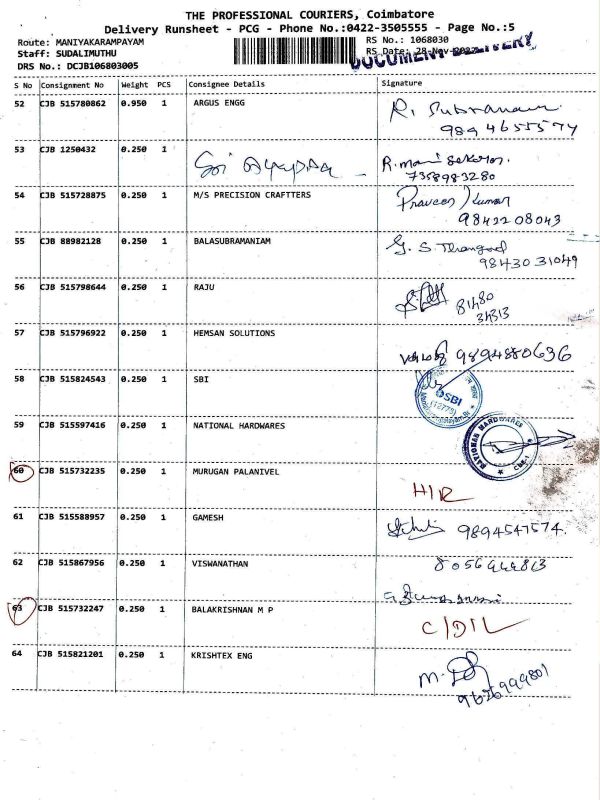 THE PROFESSIONAL COURIERS, Coimbatore
Delivery Runsheet - PCG - Phone No.:0422-3505555 - Page No.:5
Route: MANIYAKARAMPAYAM
RS No.: 1068030
Staff: SUDALIMUTHU
RS Date: 28-Nov-2022
DOCUMENT DELIVERY
DRS No.: DCJB106803005
S No Consignment No Weight PCS Consignee Details Signature
52 CJB 515780862 0.950 1 ARGUS ENGG R.
9894655574
53 CJB 1250432 0.250 1 Sri Ayappa R. mani Sekaran.
7358983280
54 CJB 515728875 0.250 1 M/S PRECISION CRAFTTERS Praveen Kumar
9842208043
55 CJB 88982128 0.250 1 BALASUBRAMANIAM G. S.
9843031049
56 CJB 515798644 0.250 1 RAJU
81480
31313
57 CJB 515796922 0.250 1 HEMSAN SOLUTIONS 9894880636
58 CJB 515824543 0.250 1 SBI
SBI
(12775)
59 CJB 515597416 0.250 1 NATIONAL HARDWARES
NATIONAL HARDWARES
60 CJB 515732235 0.250 1 MURUGAN PALANIVEL
61 CJB 515588957 0.250 1 GAMESH 9894547574.
62 CJB 515867956 0.250 1 VISWANATHAN
63 CJB 515732247 0.250 1 BALAKRISHNAN M P C/D/L
64 CJB 515821201 0.250 1 KRISHTEX ENG M.